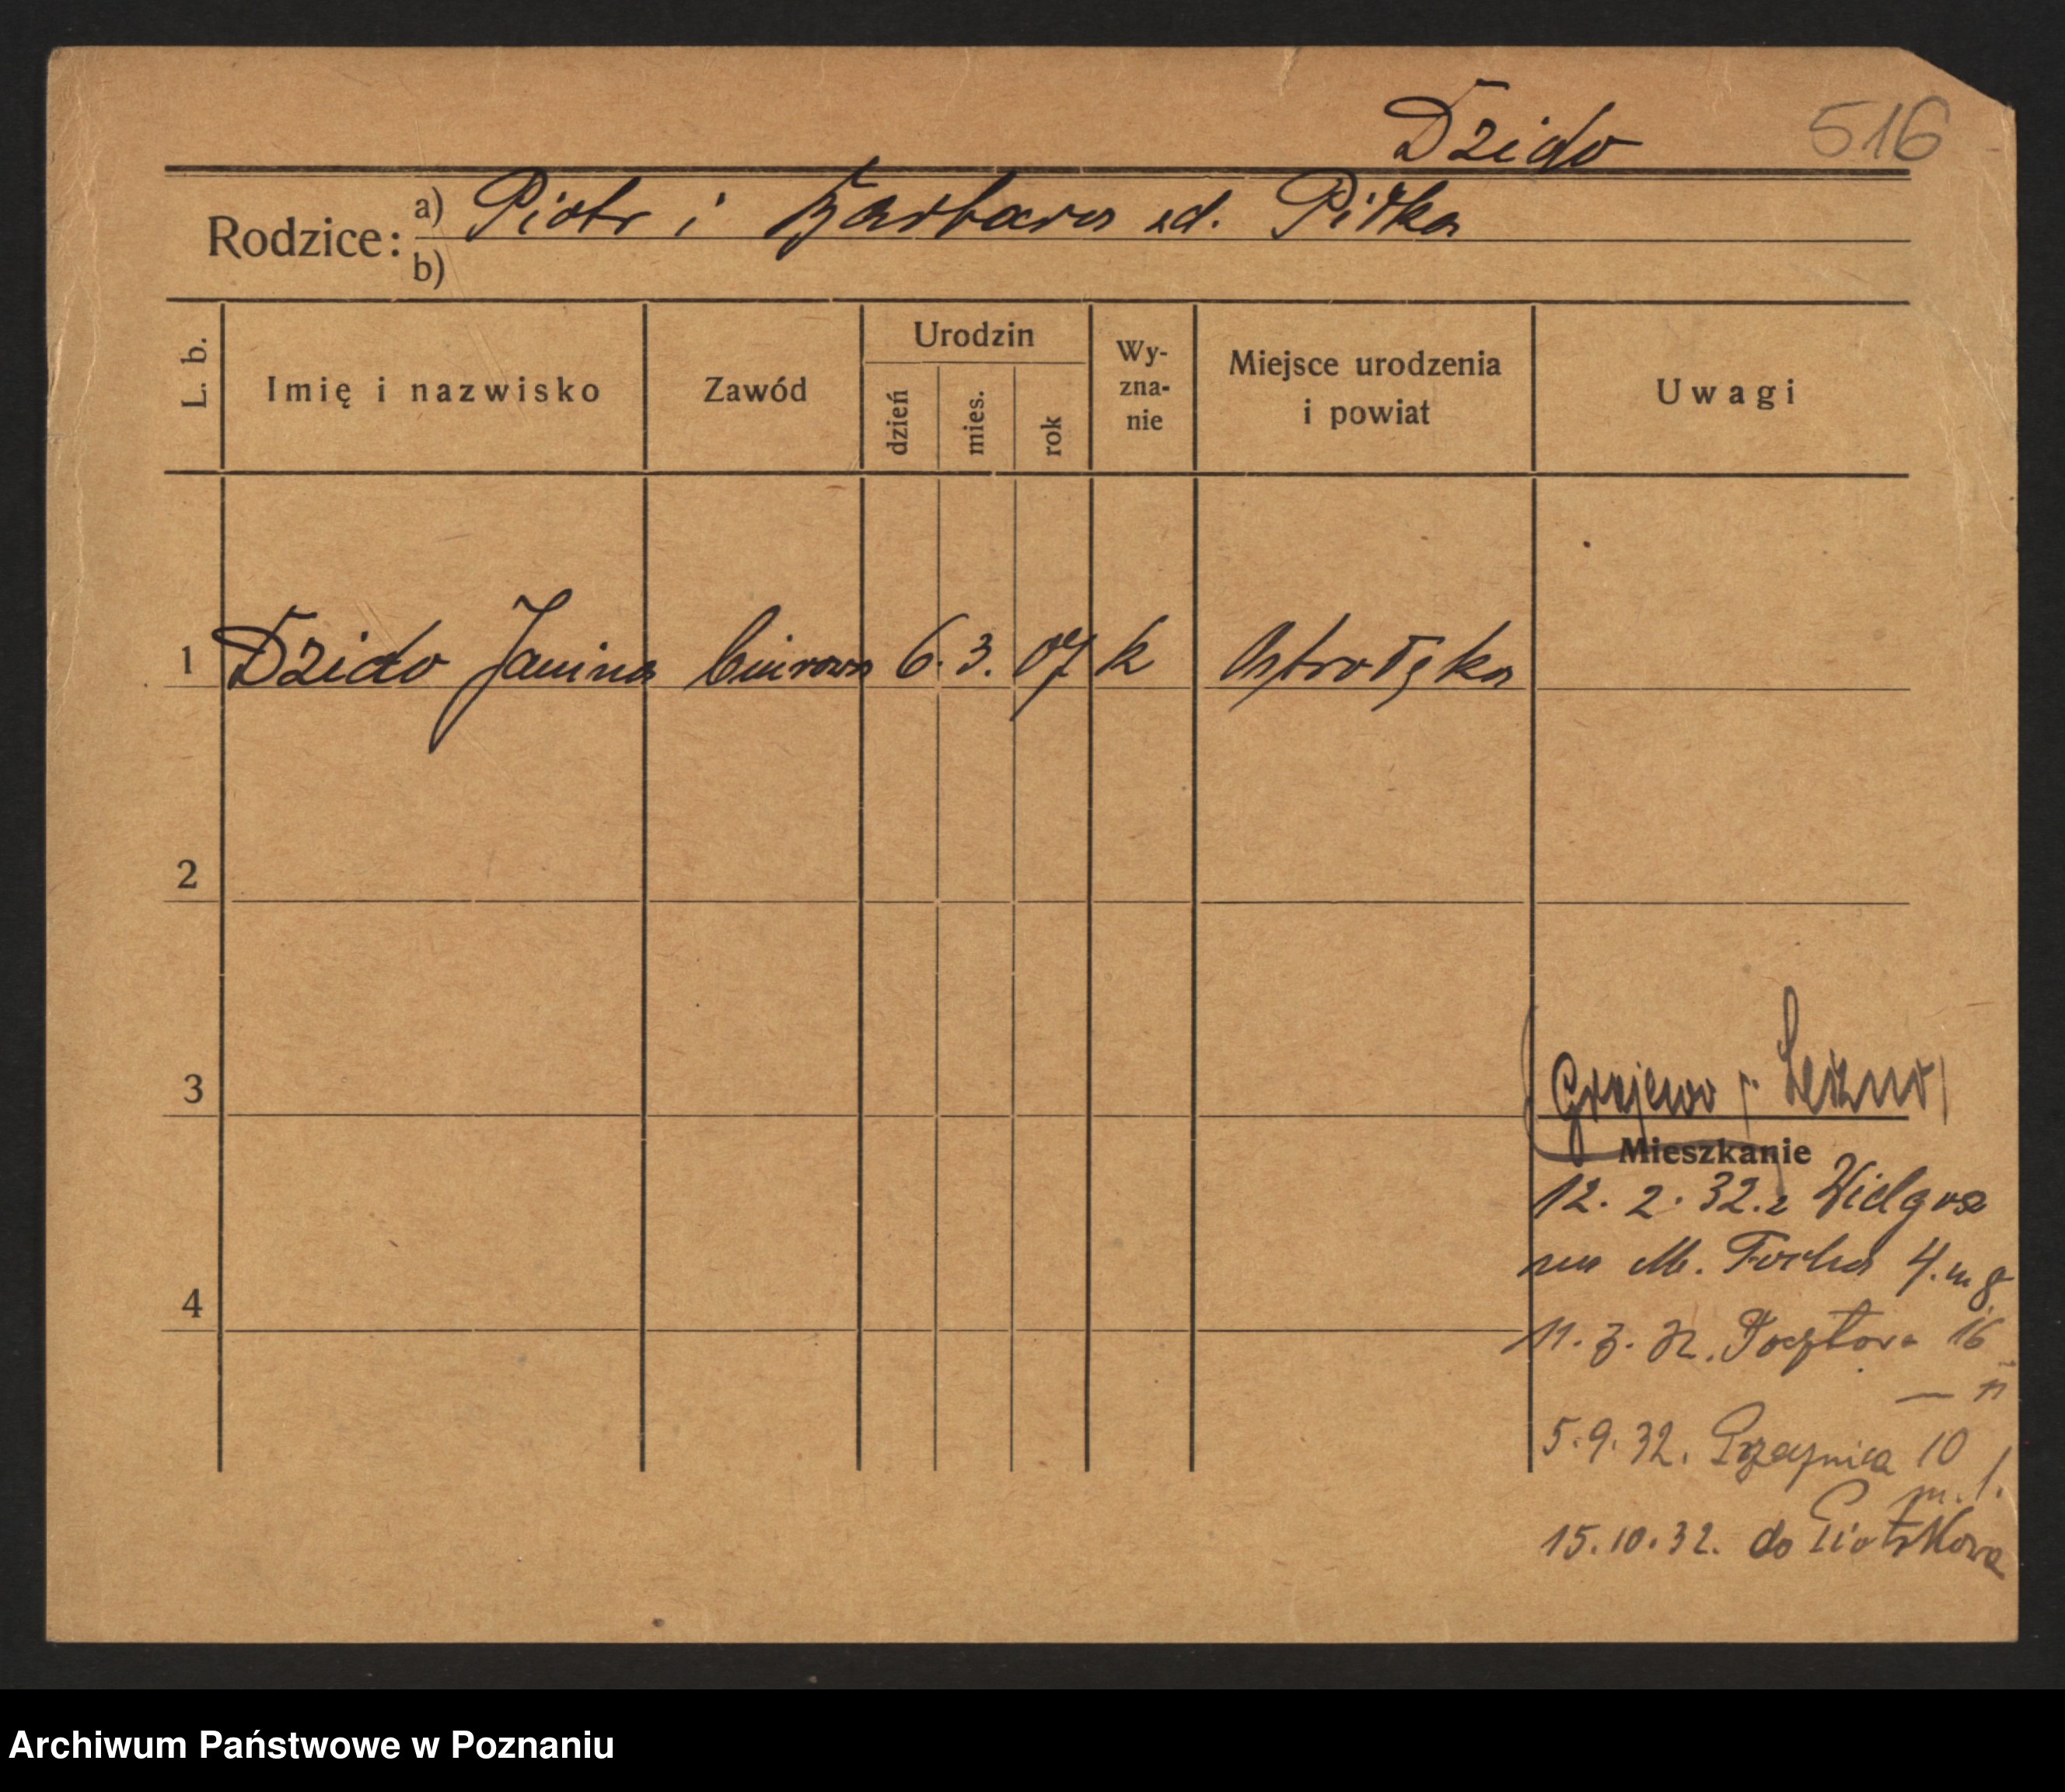 Dzido 516
Rodzice: a) Piotr i Barbara zd. Piłka
b)
L. b. Imię i nazwisko Zawód Urodzin dzień mies. rok Wy- zna- nie Miejsce urodzenia i powiat Uwagi
1 Dzido Janina biurowa 6. 3. 07 k Ostrołęka
2
3
Grajewo p. Leszno
Mieszkanie
12. 2. 32. z Wielgosz
M. Focha 4. m 8
4
11. 3. 32. Pocztowa 16
— 11
5.9.32. 10
m. 1.
15.10.32. do Piotrkowa
Archiwum Państwowe w Poznaniu